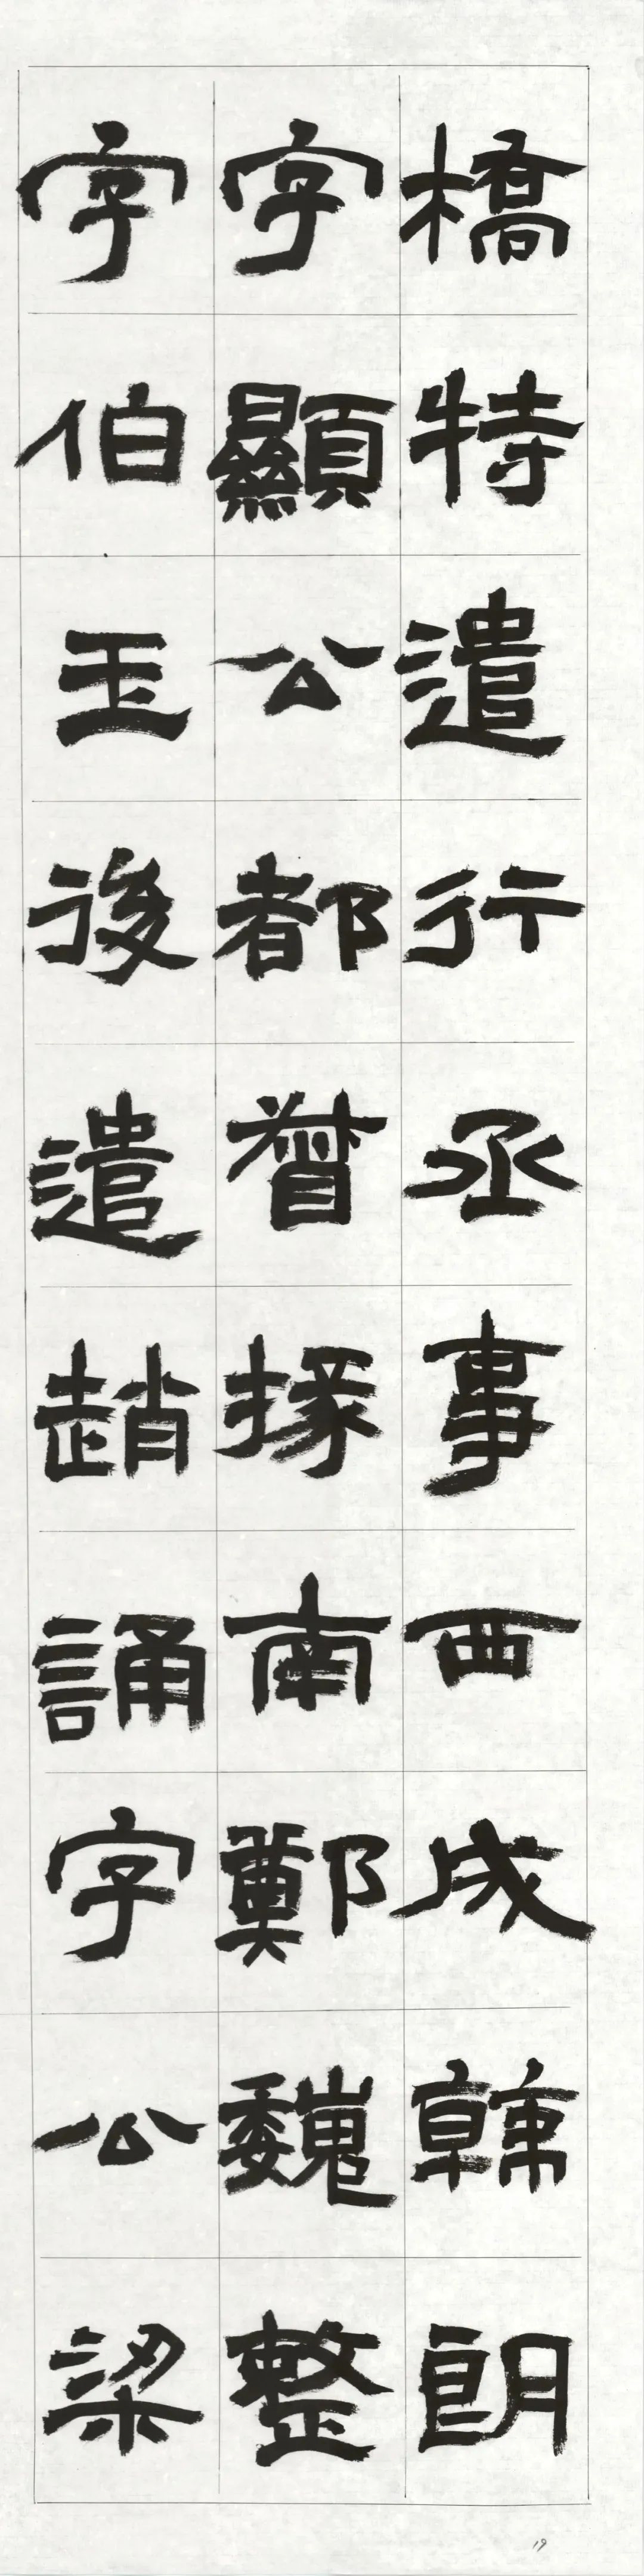 橋特遣行丞事西成韓朗
字顯公都督掾南鄭魏整
字伯玉後遣趙誦字公梁
19